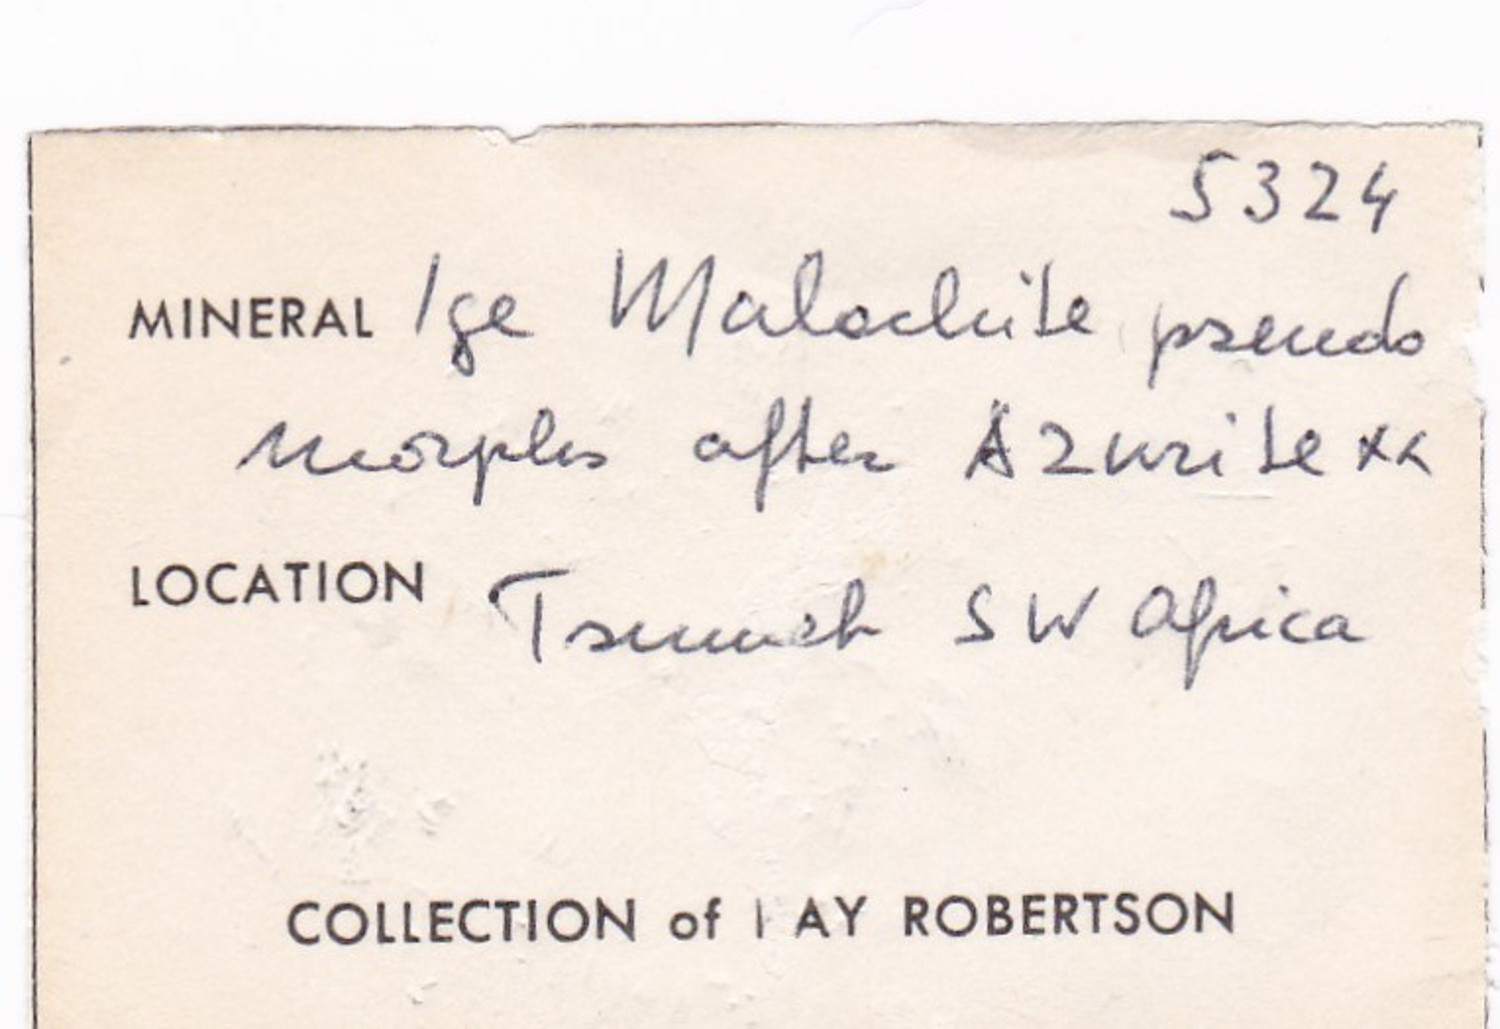 5324
MINERAL lge Malachite pseudo
morphs after Azurite xx
LOCATION Tsumeb SW Africa
COLLECTION of AY ROBERTSON